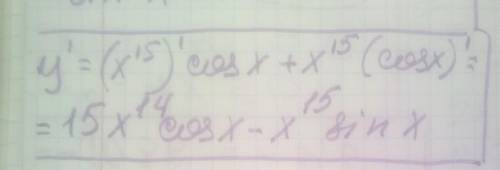 y' = (x¹⁵)' cos x + x¹⁵ (cos x)' =
= 15x¹⁴ cos x - x¹⁵ sin x